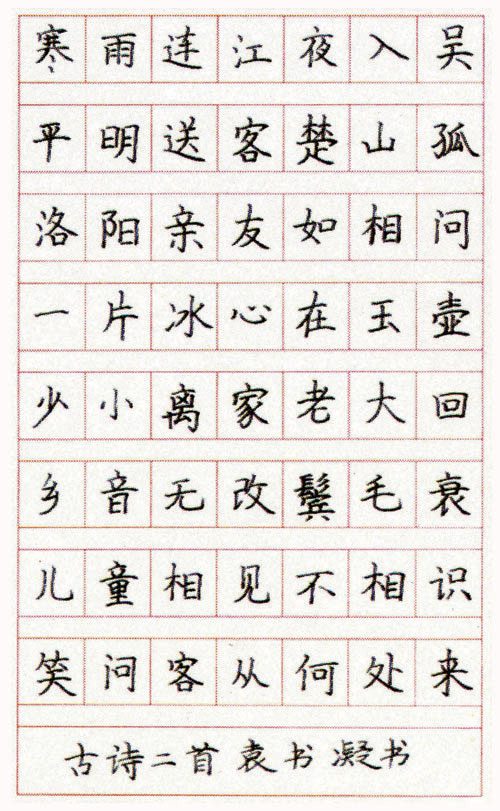 寒雨连江夜入吴
平明送客楚山孤
洛阳亲友如相问
一片冰心在玉壶
少小离家老大回
乡音无改鬓毛衰
儿童相见不相识
笑问客从何处来
古诗二首袁书凝书